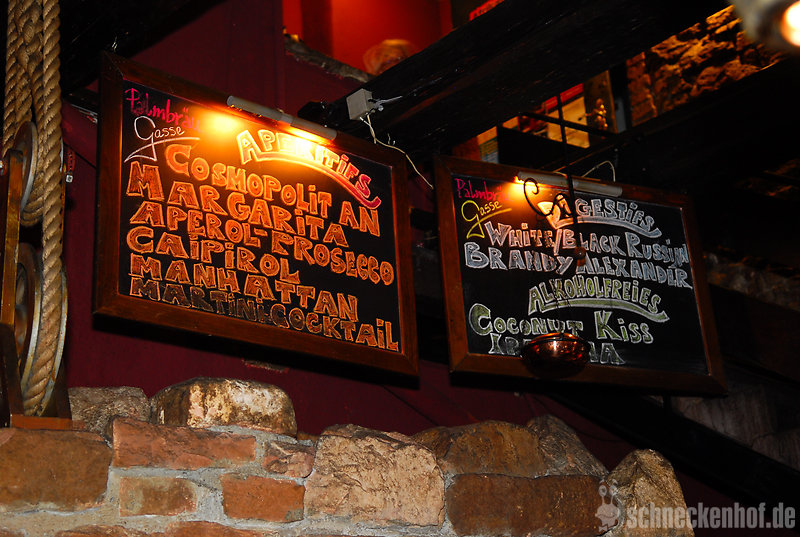 Palmbräu
Gasse
APERITIFS
COSMOPOLITAN
MARGARITA
APEROL-PROSECCO
CAIPIROL
MANHATTAN
MARTINI-COCKTAIL
Palmbräu
Gasse
DIGESTIFS
WHITE/BLACK RUSSIAN
BRANDY ALEXANDER
ALKOHOLFREIES
COCONUT KISS
schneckenhof.de